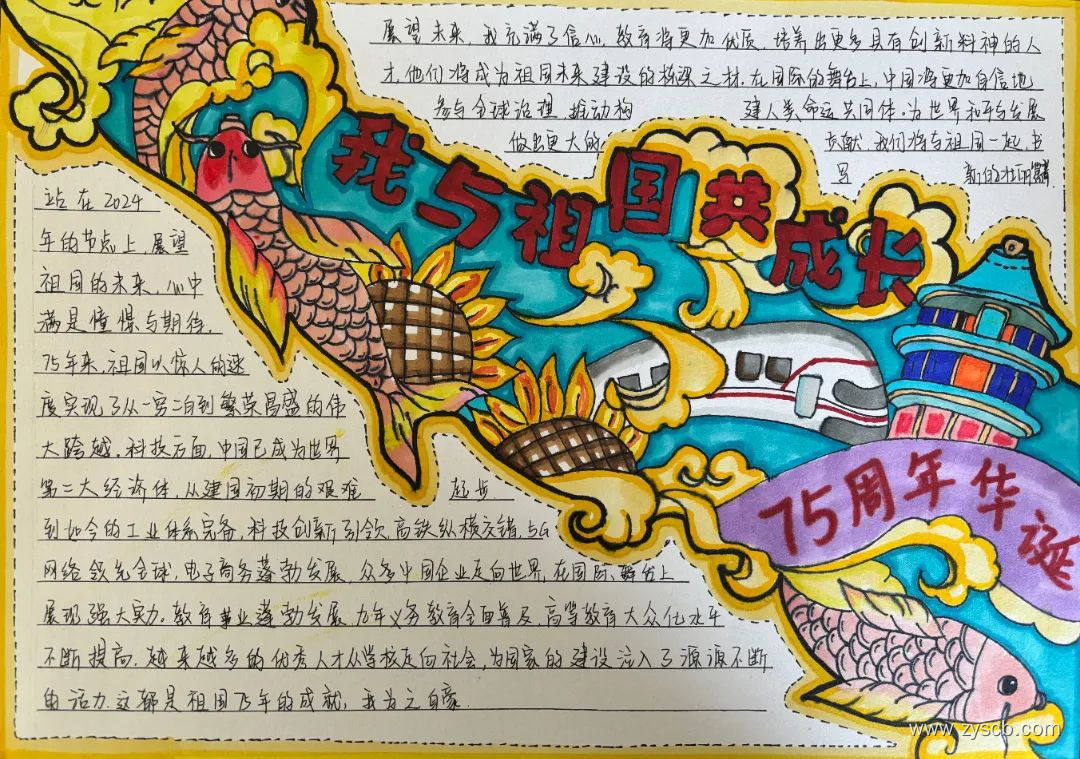 展望未来,我充满了信心,教育将更加优质,培养出更多具有创新料神的人
才,他们将成为祖国未来建设的栋梁之材,在国际的舞台上,中国将更加自信地
参与全球治理 推动构 建人类命运共同体,为世界和平与发展
做出更大的 贡献,我们将与祖国一起,书
写 新的壮丽篇章
我与祖国共成长
站在2024
年的节点上,展望
祖国的未来,心中
满是憧憬与期待,
75年来,祖国以惊人的速
度实现了从一穷二白到繁荣昌盛的伟
大跨越。科技方面,中国已成为世界
第二大经济体,从建国初期的艰难 起步,
到如今的工业体系完备,科技创新引领,高铁纵横交错,5G
网络领先全球,电子商务蓬勃发展,众多中国企业走向世界,在国际舞台上
展现强大实力。教育事业蓬勃发展,九年义务教育全面普及,高等教育大众化水平
不断提高,越来越多的优秀人才从学校走向社会,为国家的建设注入了源源不断
的活力.这都是祖国75年的成就,我为之自豪.
75周年华诞
www.zyscb.com